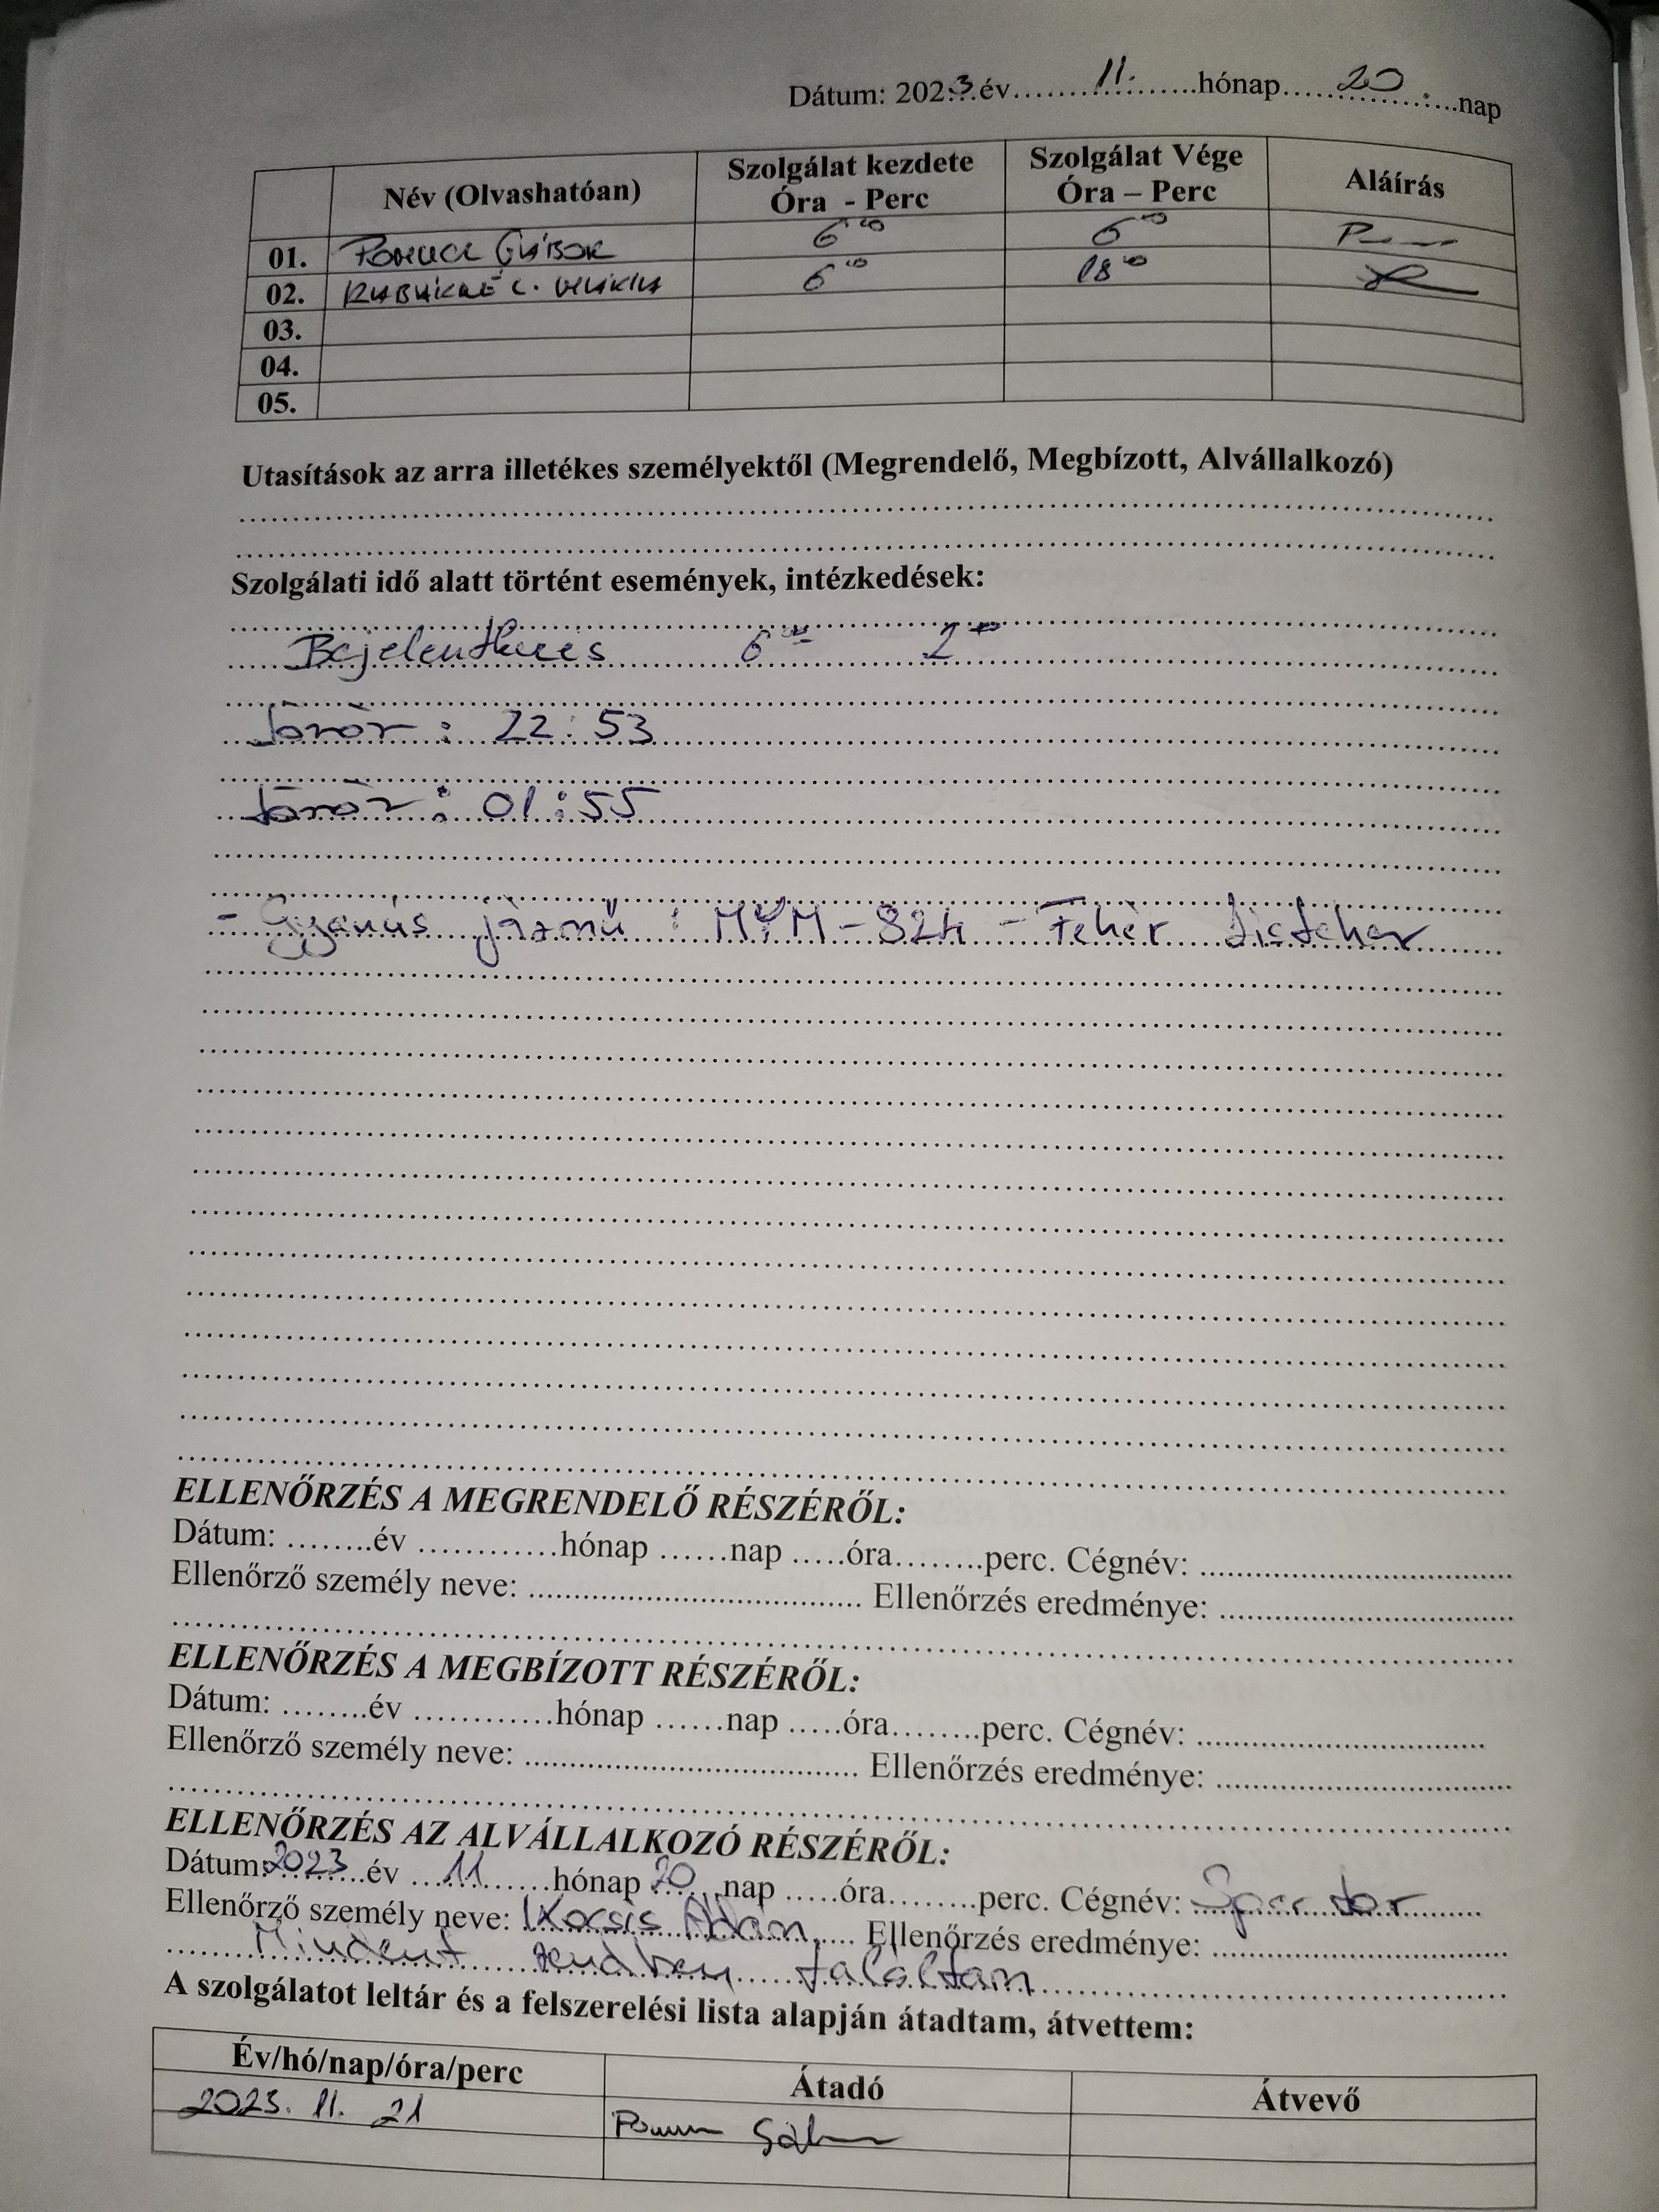 Dátum: 2023 év 11. hónap 20. nap
Név (Olvashatóan) Szolgálat kezdete Óra - Perc Szolgálat Vége Óra – Perc Aláírás
01. GÁBOR 6 00 6 00
02. 6 00 18 00
03.
04.
05.
Utasítások az arra illetékes személyektől (Megrendelő, Megbízott, Alvállalkozó)
Szolgálati idő alatt történt események, intézkedések:
Bejelentkezés 6 00
Járőr : 22:53
Járőr : 01:55
- Gyanús jármű : MYM-824 - Fehér
ELLENŐRZÉS A MEGRENDELŐ RÉSZÉRŐL:
Dátum: ........év ............hónap ......nap .....óra........perc. Cégnév: ....................................
Ellenőrző személy neve: ...................................... Ellenőrzés eredménye: ..................................
ELLENŐRZÉS A MEGBÍZOTT RÉSZÉRŐL:
Dátum: ........év ............hónap ......nap .....óra........perc. Cégnév: .................................
Ellenőrző személy neve: ...................................... Ellenőrzés eredménye: ..................................
ELLENŐRZÉS AZ ALVÁLLALKOZÓ RÉSZÉRŐL:
Dátum: 2023 év 11 hónap 20 nap .....óra........perc. Cégnév:
Ellenőrző személy neve: Kocsis Ádám Ellenőrzés eredménye: ..................................
Mindent rendben találtam
A szolgálatot leltár és a felszerelési lista alapján átadtam, átvettem:
Év/hó/nap/óra/perc Átadó Átvevő
2023. 11. 21